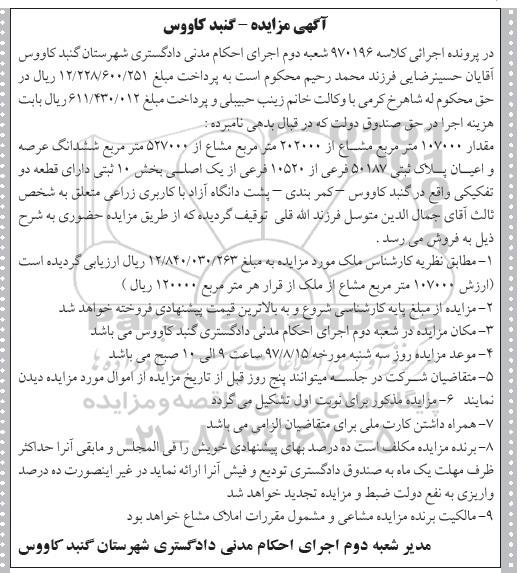 آگهی مزایده - گنبد کاووس
در پرونده اجرائی کلاسه ۹۷۰۱۹۶ شعبه دوم اجرای احکام مدنی دادگستری شهرستان گنبد کاووس
آقایان حسینرضایی فرزند محمد رحیم محکوم است به پرداخت مبلغ ۱۲/۲۲۸/۶۰۰/۲۵۱ ریال در
حق محکوم له شاهرخ کرمی با وکالت خانم زینب حبیبلی و پرداخت مبلغ ۶۱۱/۴۳۰/۰۱۲ ریال بابت
هزینه اجرا در حق صندوق دولت که در قبال بدهی نامبرده :
مقدار ۱۰۷۰۰۰ متر مربع مشاع از ۲۰۲۰۰۰ متر مربع مشاع از ۵۲۷۰۰۰ متر مربع ششدانگ عرصه
و اعیان پلاک ثبتی ۵۰۱۸۷ فرعی از ۱۰۵۲۰ فرعی از یک اصلی بخش ۱۰ ثبتی دارای قطعه دو
تفکیکی واقع در گنبد کاووس –کمر بندی – پشت دانگاه آزاد با کاربری زراعی متعلق به شخص
ثالث آقای جمال الدین متوسل فرزند الله قلی توقیف گردیده که از طریق مزایده حضوری به شرح
ذیل به فروش می رسد .
۱- مطابق نظریه کارشناس ملک مورد مزایده به مبلغ ۱۲/۸۴۰/۰۳۰/۲۶۳ ریال ارزیابی گردیده است
(ارزش ۱۰۷۰۰۰ متر مربع مشاع از ملک از قرار هر متر مربع ۱۲۰۰۰۰ ریال )
۲- مزایده از مبلغ پایه کارشناسی شروع و به بالاترین قیمت پیشنهادی فروخته خواهد شد
۳- مکان مزایده در شعبه دوم اجرای احکام مدنی دادگستری گنبد کاووس می باشد
۴- موعد مزایده روز سه شنبه مورخه ۹۷/۸/۱۵ ساعت ۹ الی ۱۰ صبح می باشد
۵- متقاضیان شرکت در جلسه میتوانند پنج روز قبل از تاریخ مزایده از اموال مورد مزایده دیدن
نمایند ۶- مزایده مذکور برای نوبت اول تشکیل می گردد
۷- همراه داشتن کارت ملی برای متقاضیان الزامی می باشد
۸- برنده مزایده مکلف است ده درصد بهای پیشنهادی خویش را فی المجلس و مابقی آنرا حداکثر
ظرف مهلت یک ماه به صندوق دادگستری تودیع و فیش آنرا ارائه نماید در غیر اینصورت ده درصد
واریزی به نفع دولت ضبط و مزایده تجدید خواهد شد
۹- مالکیت برنده مزایده مشاعی و مشمول مقررات املاک مشاع خواهد بود
مدیر شعبه دوم اجرای احکام مدنی دادگستری شهرستان گنبد کاووس
۰۲۱-۸۸۳۴۹۶۷۰-۵